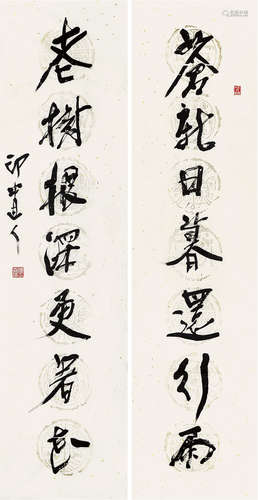 蒼龍日暮還行雨
老樹根深更著花